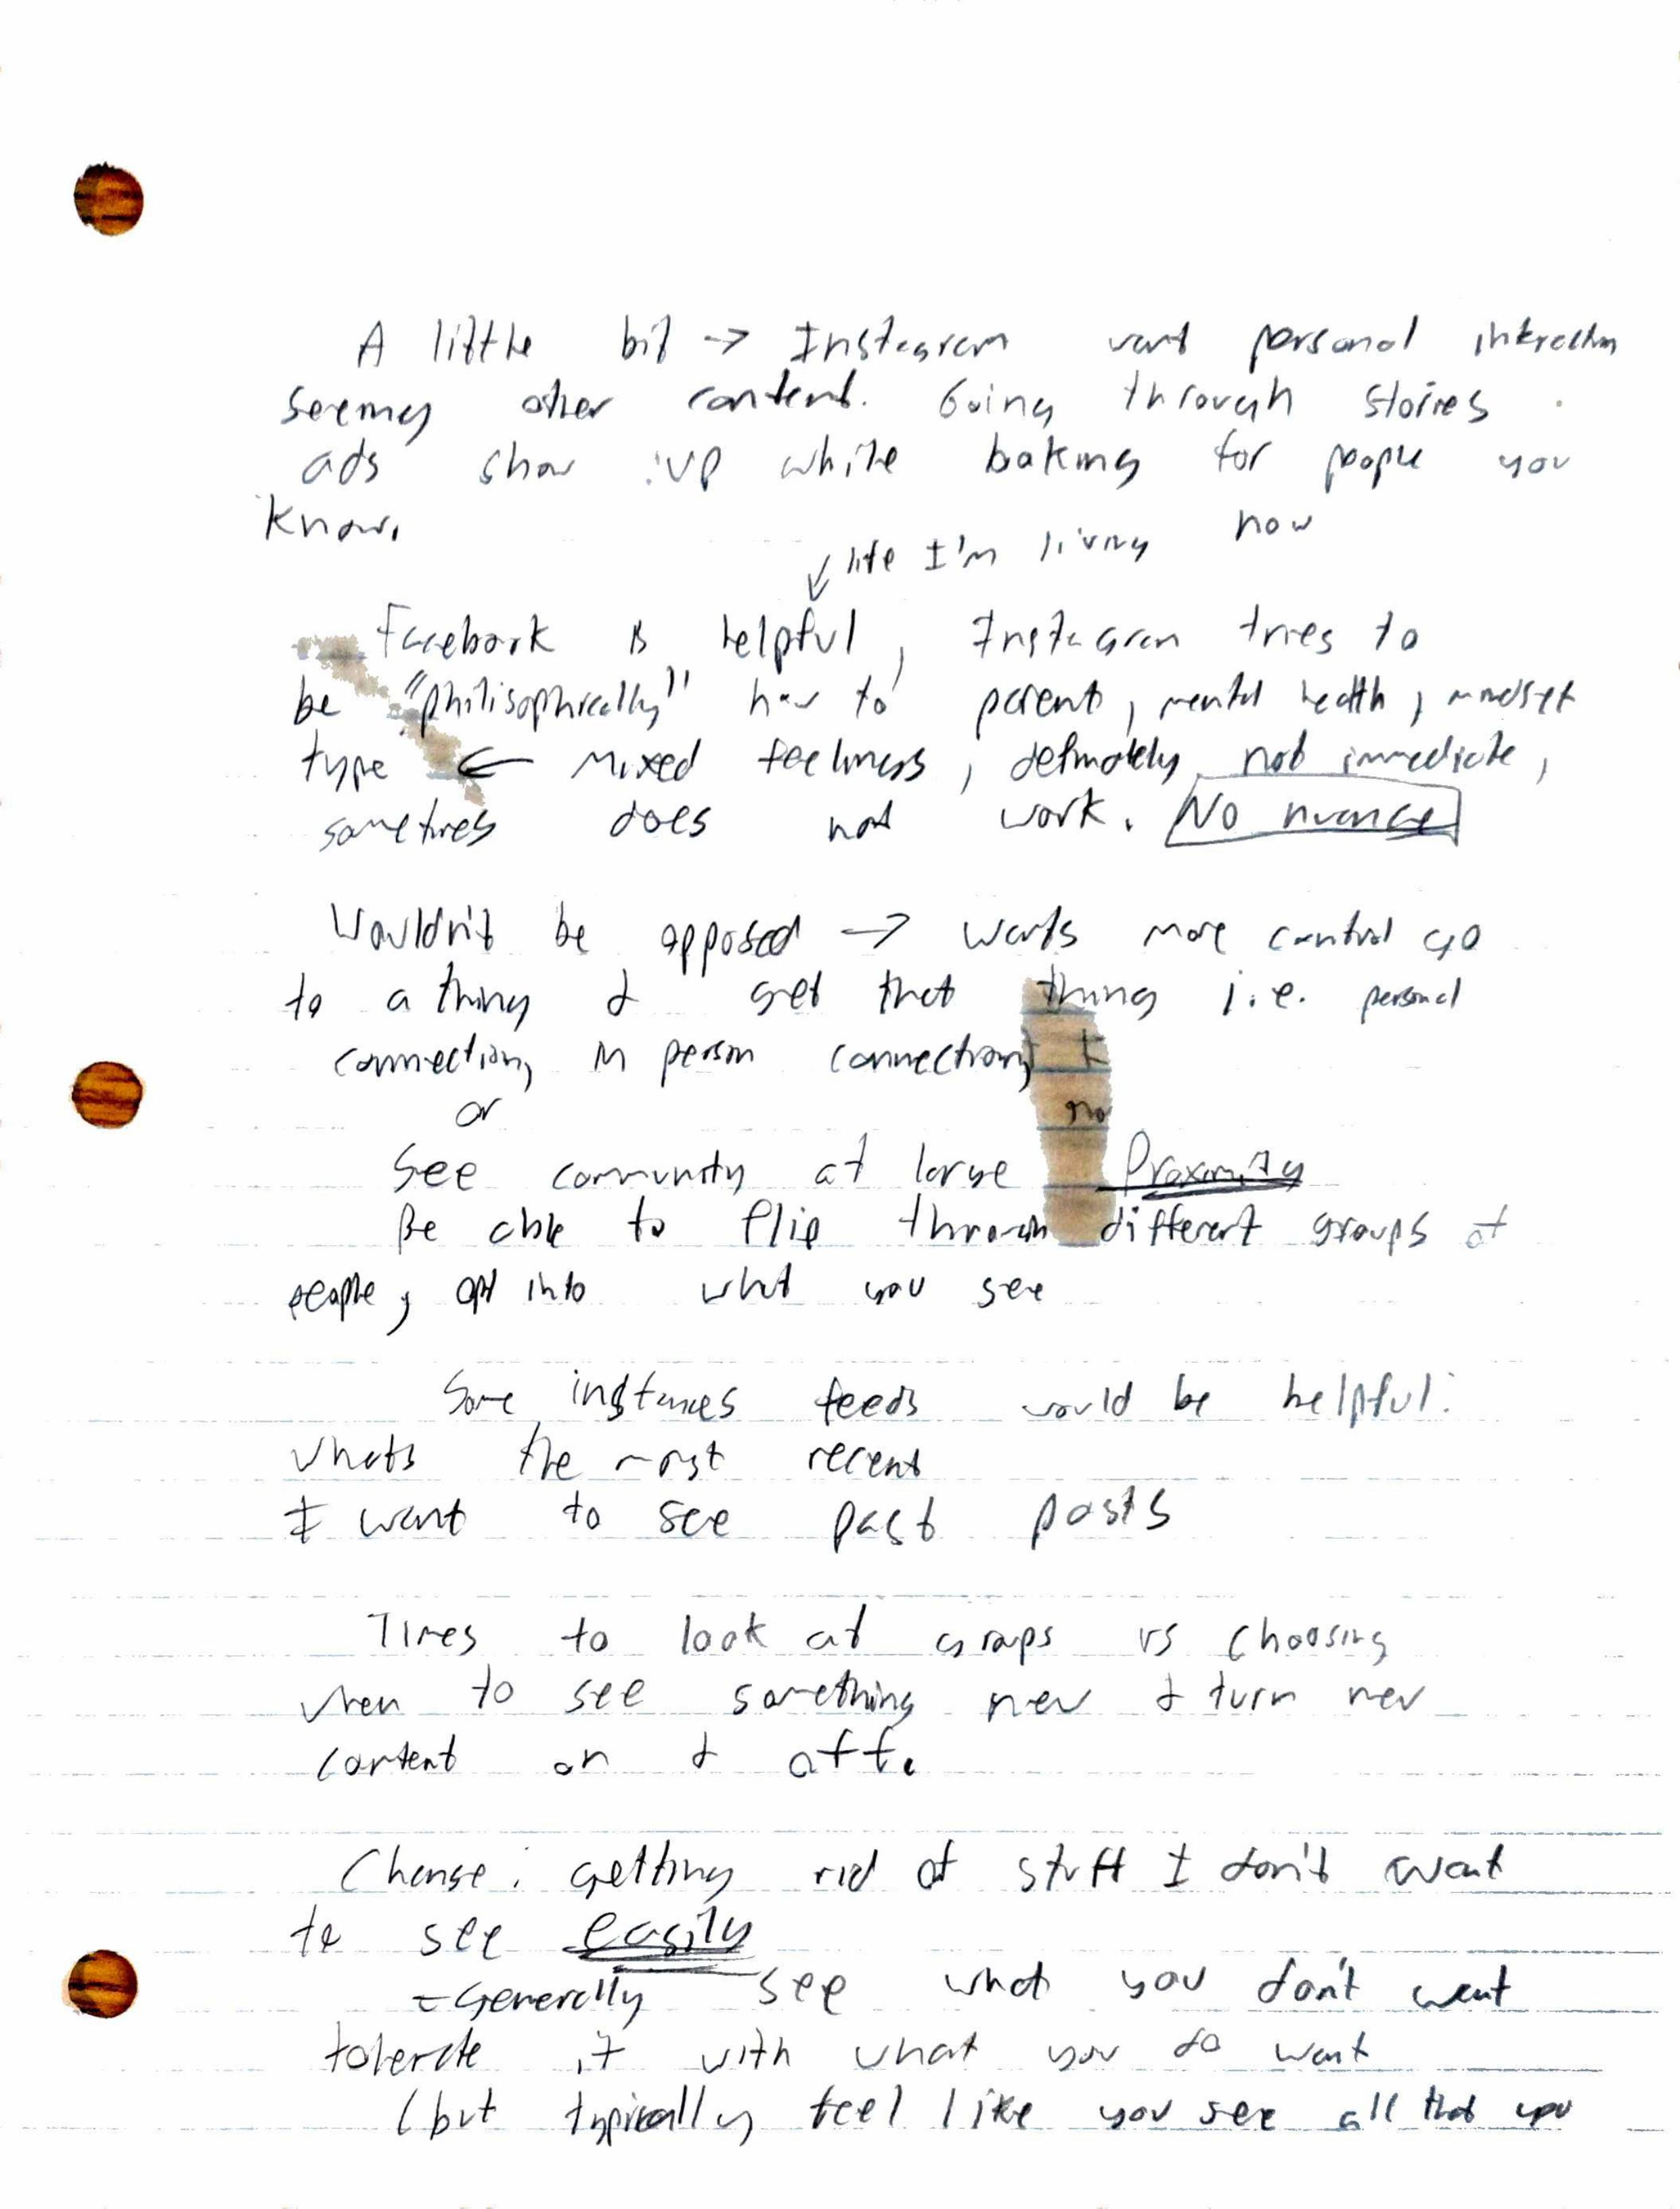 A little bit → Instagram want personal interaction
seeing other content. Going through stories
ads show up while looking for people you
know.
↓ life I'm living now
Facebook is helpful, Instagram tries to
be "philisophically" how to parent, mental health, mindset
type ← Mixed feelings, definately not immediate,
sometimes does not work. No nuance
Wouldn't be opposed → wants more control go
to a thing & get that thing i.e. personal
connection, in person connection,
or
See community at large Proximity
Be able to flip through different groups of
people, opt into what you see
Some instances feeds would be helpful:
whats the most recent
I want to see past posts
Times to look at groups vs choosing
when to see something new & turn new
content on & off.
Change: getting rid of stuff I don't want
to see easily
- Generally see what you don't want
tolerate it with what you do want
(but typically feel like you see all that you